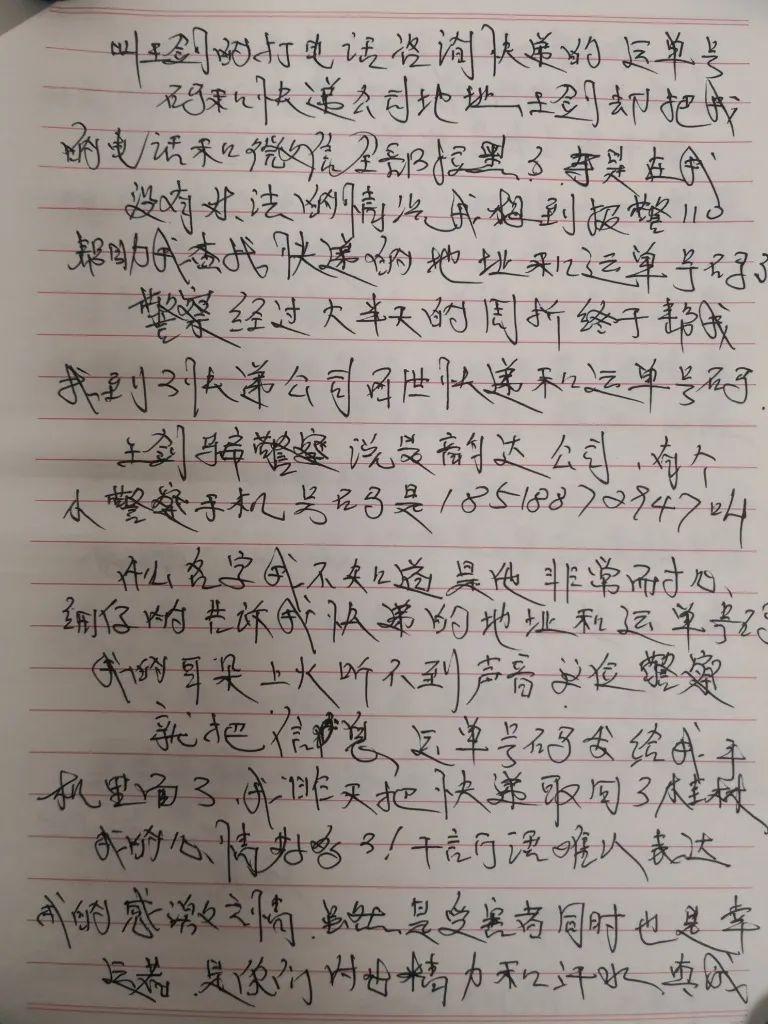 叫王剑的打电话咨询快递的运单号
码和快递公司地址、王剑却把我
的电话和微信全部拉黑了.要是在我
没有办法的情况我想到报警110
帮助我查找快递的地址和运单号码了
警察经过大半天的周折终于帮我
找到了快递公司 快递和运单号码了.
王剑 警察说是韵达公司、有个
警察手机号码是18518872947叫
什么名字我不知道是他非常而才心、
细仔的告诉我快递的地址和运单号码
我的耳朵上火听不到声音这位警察
就把信息、运单号码发给我手
机里面了.我昨天把快递取回了桂树
我的心情好多了!千言万语难以表达
我的感激之情.虽然是受害者同时也是幸
运者.是你们付出精力和汗水.真成